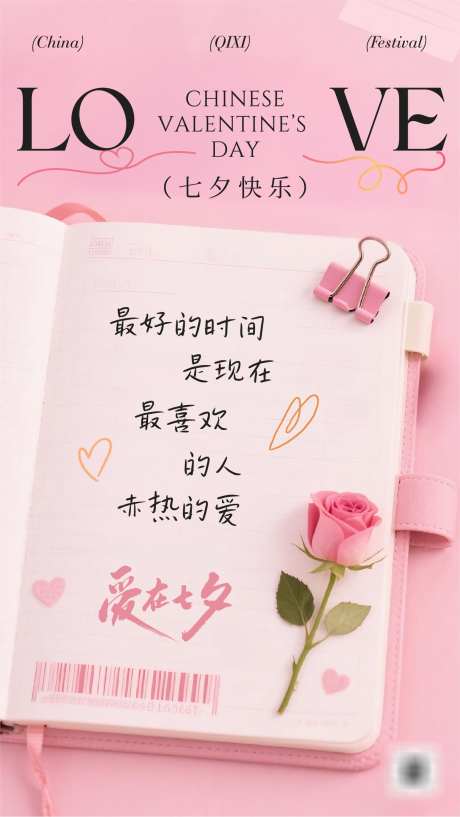 (China) (QIXI) (Festival)
LO VE
CHINESE
VALENTINE'S
DAY
(七夕快乐)
最好的时间
是现在
最喜欢
的人
赤热的爱
爱在七夕